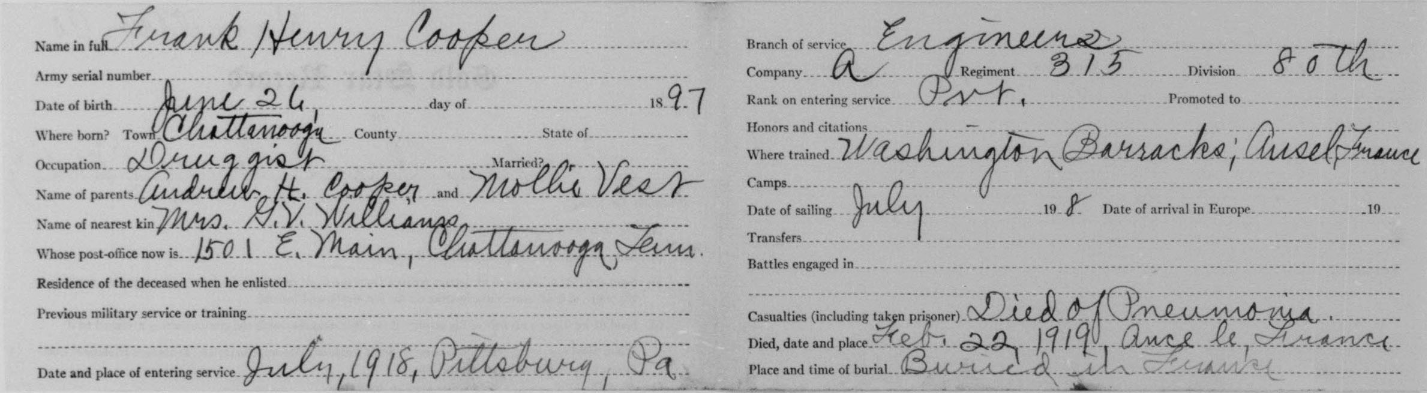 Name in full Frank Henry Cooper
Army serial number
Date of birth June 26, day of 1897
Where born? Town Chattanooga County State of
Occupation Druggist Married?
Name of parents Andrew H. Cooper and Mollie Vest
Name of nearest kin Mrs. G.V. Williams
Whose post-office now is 1501 E. Main, Chattanooga, Tenn.
Residence of the deceased when he enlisted
Previous military service or training
Date and place of entering service July, 1918, Pittsburg, Pa
Branch of service Engineers
Company A Regiment 315 Division 80th
Rank on entering service Pvt. Promoted to
Honors and citations
Where trained Washington Barracks; Ansel, France
Camps
Date of sailing July 19 8 Date of arrival in Europe 19
Transfers
Battles engaged in
Casualties (including taken prisoner) Died of Pneumonia.
Died, date and place Feb. 22, 1919, Ance le, France
Place and time of burial Buried in France